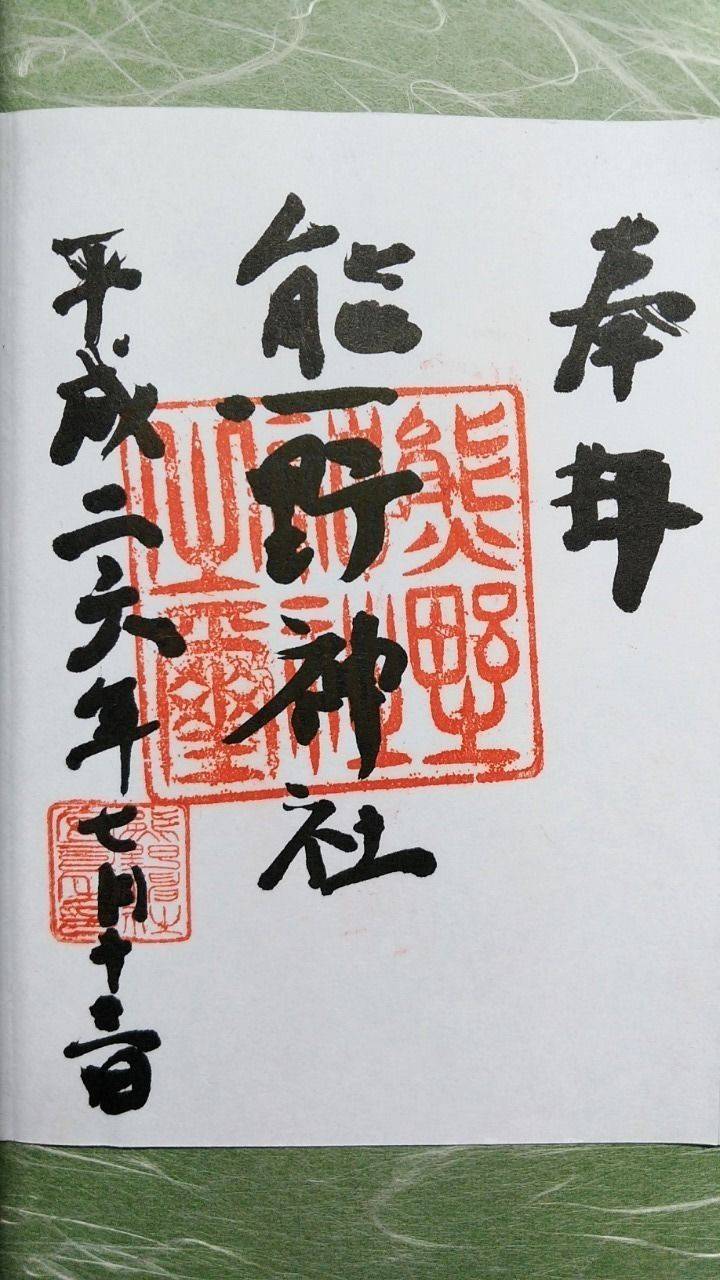 奉拝
熊野神社
平成二六年七月十二日
熊野
神社
之璽